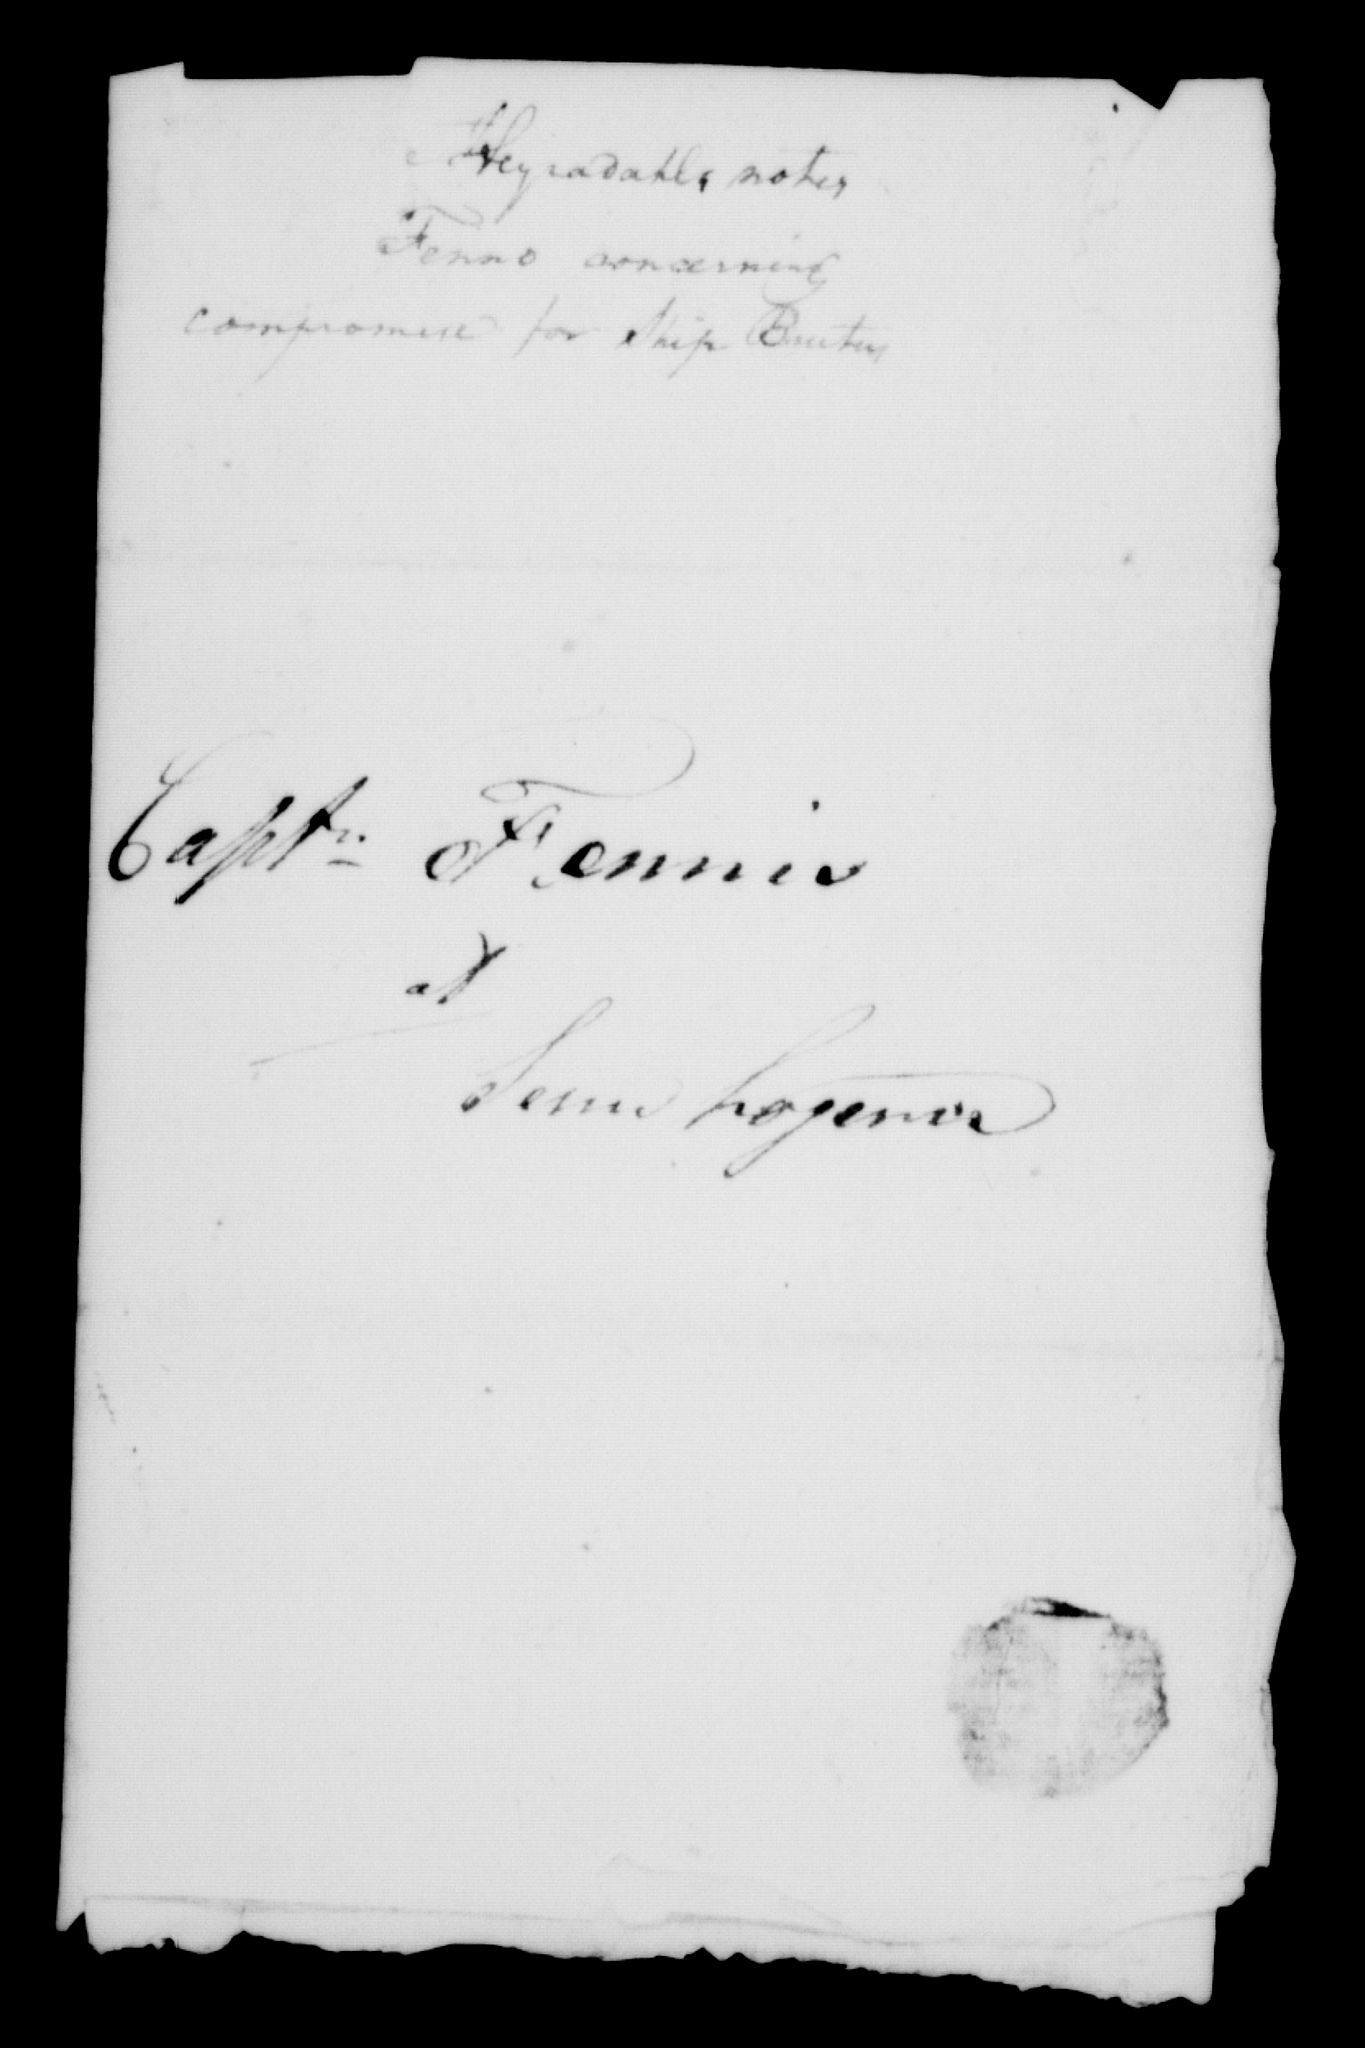 Hegradahls notes
Fenno concerning
compromise for Ship Brutus
Captn. Fennis
at